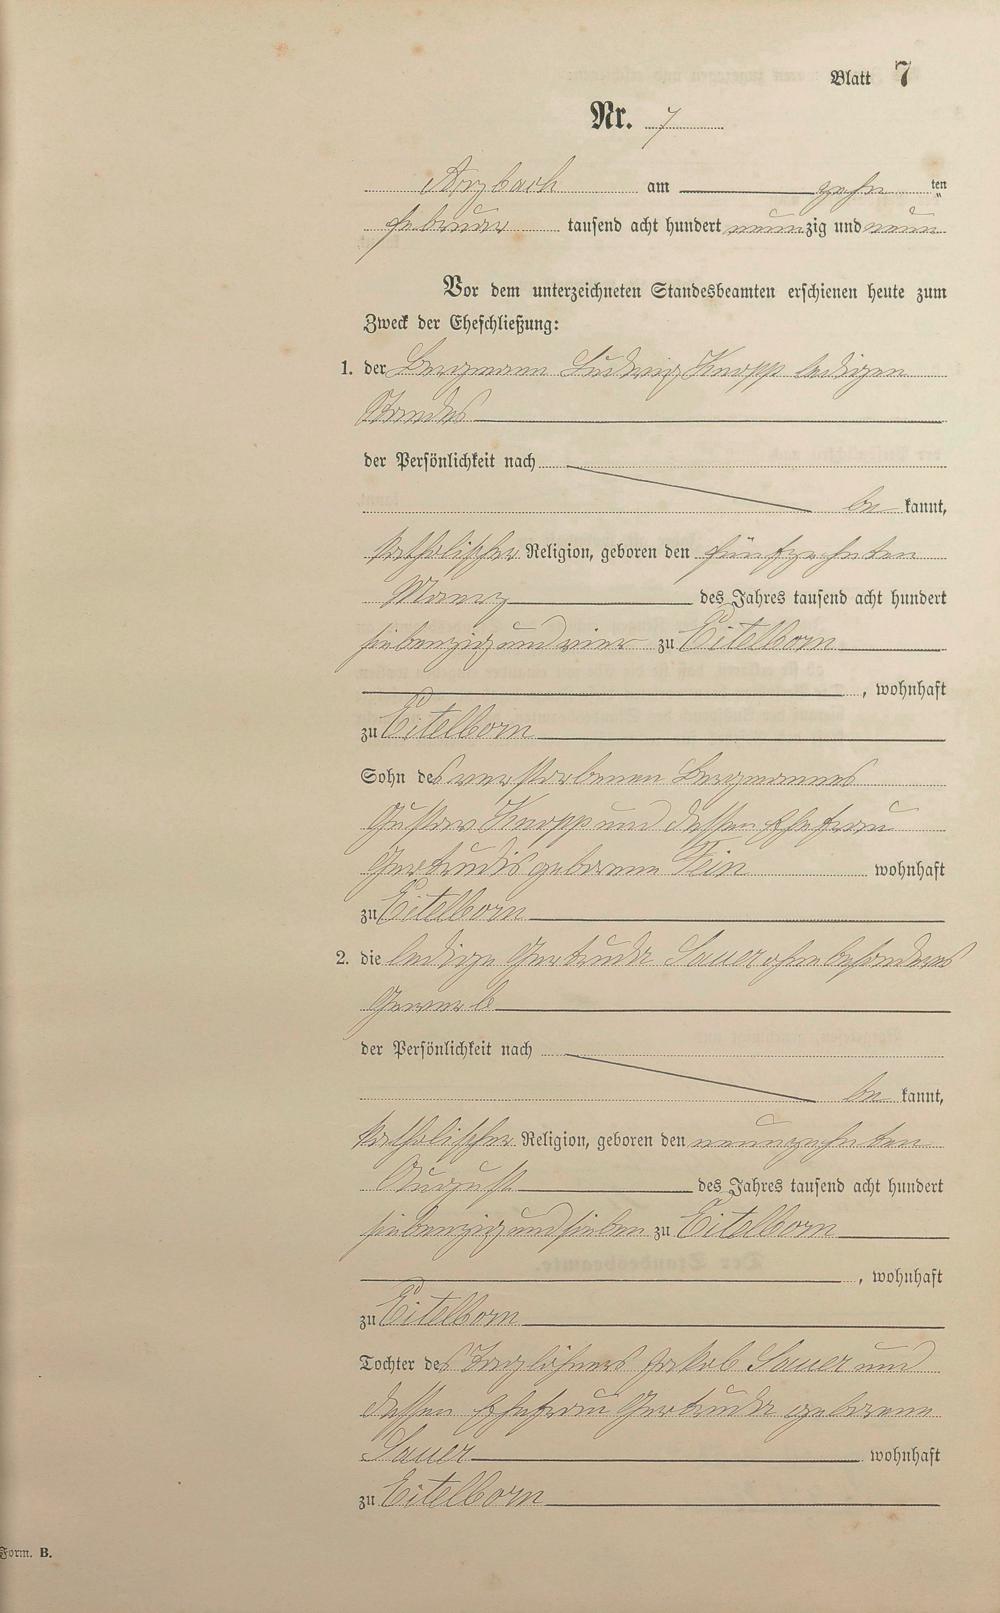 Blatt 7
Nr. 7
Arzbach am zehnten
Februar tausend acht hundert neunzig und neun
Vor dem unterzeichneten Standesbeamten erschienen heute zum
Zweck der Eheschließung:
1. der Bergmann Ludwig Knopp ledigen
Standes
der Persönlichkeit nach
bekannt,
katholischer Religion, geboren den fünfzehnten
Maerz des Jahres tausend acht hundert
siebenzig und vier zu Eitelborn
, wohnhaft
zu Eitelborn
Sohn des verstorbenen Bergmannes
Gustav Knopp und dessen Ehefrau
Gertrudis geborene Fein wohnhaft
zu Eitelborn
2. die ledige Gertruda Sauer ohne besonderes
Gewerb
der Persönlichkeit nach
bekannt,
katholischer Religion, geboren den neunzehnten
August des Jahres tausend acht hundert
siebenzig und sieben zu Eitelborn
, wohnhaft
zu Eitelborn
Tochter des Taglöhners Jakob Sauer und
dessen Ehefrau Gertruda geborene
Sauer wohnhaft
zu Eitelborn
Form. B.